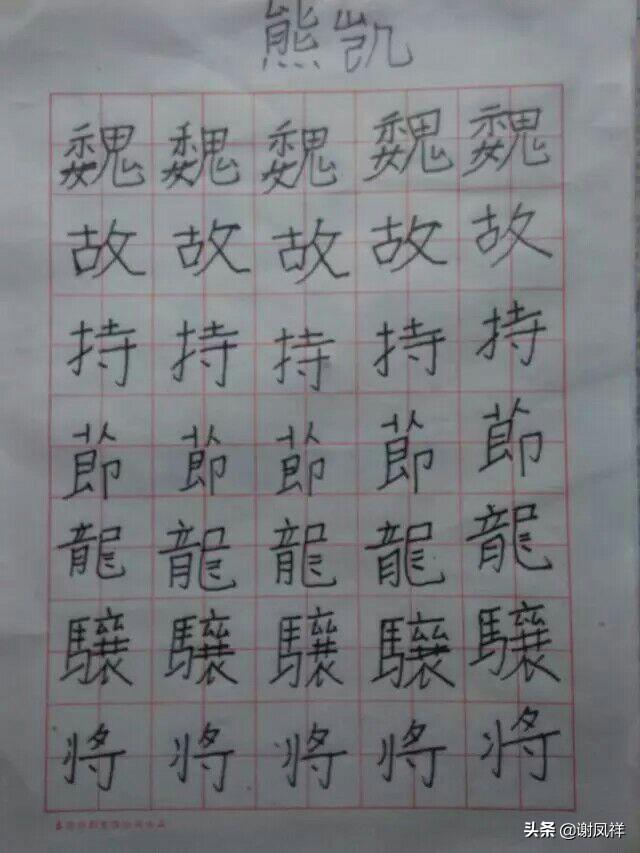 熊凯
魏魏魏魏魏
故故故故故
持持持持持
節節節節節
龍龍龍龍龍
驤驤驤驤驤
将将将将将
头条 @谢凤祥